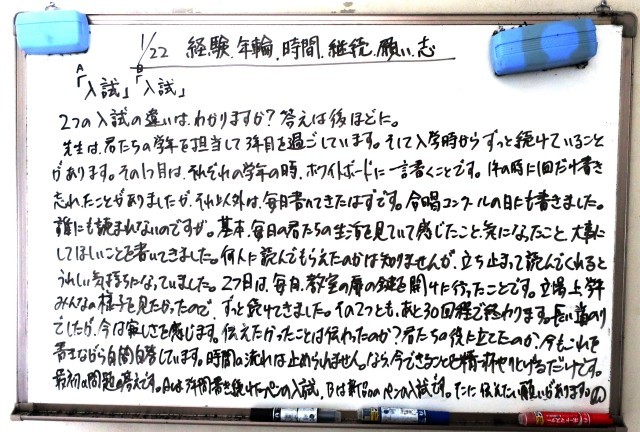 1/22 経験.年輪.時間.継続.願い.志
A B
「入試」「入試」
2つの入試の違いは、わかりますか?答えは後ほどに。
先生は、君たちの学年を担当して3年目を過ごしています。そして入学時からずっと続けていること
があります。その1つ目は、それぞれの学年の時、ホワイトボードに一言書くことです。1年の時に1回だけ書き
忘れたことがありましたが、それ以外は、毎日書いてきたはずです。合唱コンクールの日にも書きました。
誰にも読まれないのですが。基本、毎日の君たちの生活を見ていて感じたこと、気になったこと、大事に
してほしいことを書いてきました。何人に読んでもらえたのかは知りませんが、立ち止まって読んでくれると
うれしい気持ちになっていました。2つ目は、毎日、教室の扉の鍵を開けに行ったことです。立場上、学年
みんなの様子を見たかったので、ずっと続けてきました。その2つとも、あと30回程で終わります。長い道のり
でしたが、今は寂しさを感じます。伝えたかったことは伝わったのか?君たちの役に立てたのか、今もこれを
書きながら自問自答しています。時間の流れは止められません。なら、今できることを精一杯やりとげるだけです。
最初の問題の答えです。Aは3年間書き続けたペンの入試、Bは新品のペンの入試です。ただ伝えたい願いがあります。